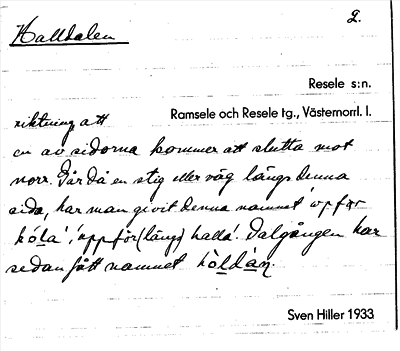 Halldalen 2.
Resele s:n.
Ramsele och Resele tg., Västernorrl. l.
riktning att
en av sidorna kommer att slutta mot
norr. Går då en stig eller väg längs denna
sida, har man givit denna namnet
hóla', 'uppför (längs) halla'. Dalgången har
sedan fått namnet
Sven Hiller 1933